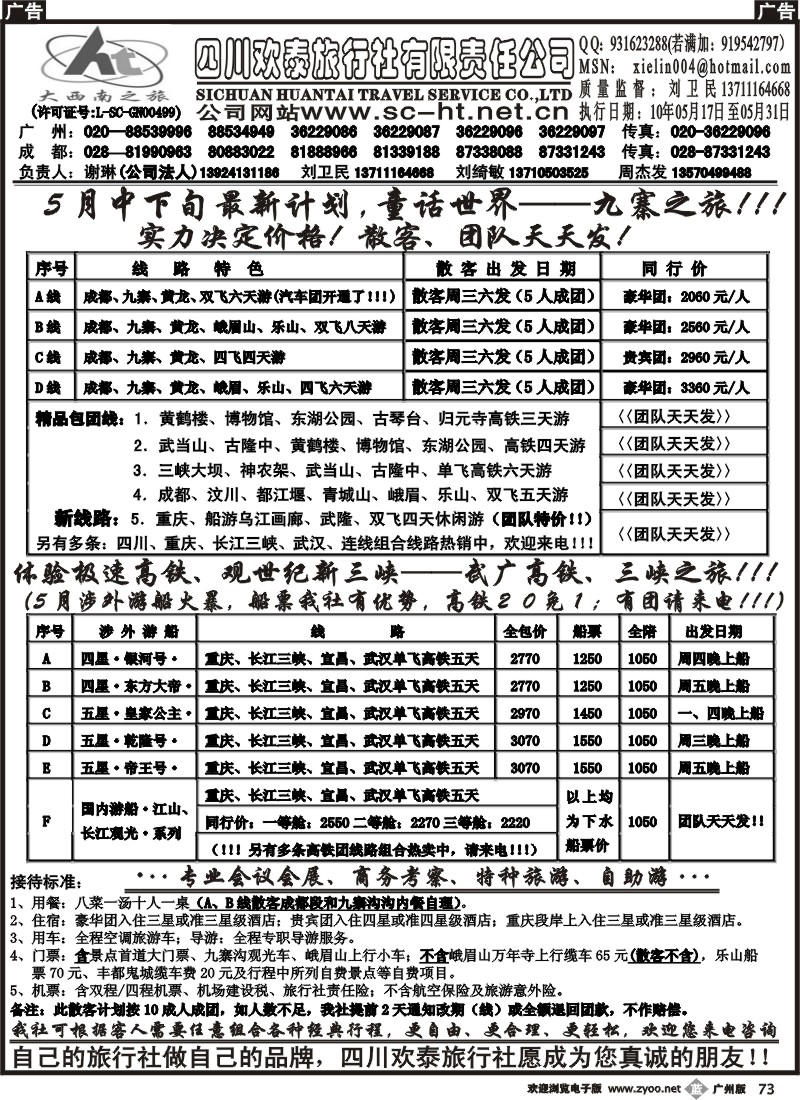 广告 广告
ht
大西南之旅
(许可证号:L-SC-GN00499)
四川欢泰旅行社有限责任公司
SICHUAN HUANTAI TRAVEL SERVICE CO.,LTD
公司网站www.sc-ht.net.cn
QQ: 931623288(若满加: 919542797)
MSN: xielin004@hotmail.com
质量监督: 刘卫民13711164668
执行日期: 10年05月17日至05月31日
广 州: 020—88539996 88534949 36229086 36229087 36229096 36229097 传真: 020-36229096
成 都: 028—81990963 80883022 81888966 81339188 87338088 87331243 传真: 028-87331243
负责人: 谢琳(公司法人)13924131186 刘卫民 13711164668 刘绮敏 13710503525 周杰发 13570499488
5月中下旬最新计划,童话世界——九寨之旅!!!
实力决定价格! 散客、团队天天发!
序号 线 路 特 色 散客出发日期 同行价
A线 成都、九寨、黄龙、双飞六天游(汽车团开通了!!!) 散客周三六发(5人成团) 豪华团: 2060元/人
B线 成都、九寨、黄龙、峨眉山、乐山、双飞八天游 散客周三六发(5人成团) 豪华团: 2560元/人
C线 成都、九寨、黄龙、四飞四天游 散客周三六发(5人成团) 贵宾团: 2960元/人
D线 成都、九寨、黄龙、峨眉、乐山、四飞六天游 散客周三六发(5人成团) 豪华团: 3360元/人
精品包团线: 1. 黄鹤楼、博物馆、东湖公园、古琴台、归元寺高铁三天游 〈〈团队天天发〉〉
2. 武当山、古隆中、黄鹤楼、博物馆、东湖公园、高铁四天游 〈〈团队天天发〉〉
3. 三峡大坝、神农架、武当山、古隆中、单飞高铁六天游 〈〈团队天天发〉〉
4. 成都、汶川、都江堰、青城山、峨眉、乐山、双飞五天游 〈〈团队天天发〉〉
新线路: 5. 重庆、船游乌江画廊、武隆、双飞四天休闲游(团队特价!!) 〈〈团队天天发〉〉
另有多条: 四川、重庆、长江三峡、武汉、连线组合线路热销中,欢迎来电!!!
体验极速高铁、观世纪新三峡——武广高铁、三峡之旅!!!
(5月涉外游船火暴,船票我社有优势,高铁20免1;有团请来电!!!)
序号 涉外游船 线 路 全包价 船票 全陪 出发日期
A 四星·银河号· 重庆、长江三峡、宜昌、武汉单飞高铁五天 2770 1250 1050 周四晚上船
B 四星·东方大帝· 重庆、长江三峡、宜昌、武汉单飞高铁五天 2770 1250 1050 周五晚上船
C 五星·皇家公主· 重庆、长江三峡、宜昌、武汉单飞高铁五天 2970 1450 1050 一、四晚上船
D 五星·乾隆号· 重庆、长江三峡、宜昌、武汉单飞高铁五天 3070 1550 1050 周三晚上船
E 五星·帝王号· 重庆、长江三峡、宜昌、武汉单飞高铁五天 3070 1550 1050 周五晚上船
F 国内游船·江山、长江观光·系列 重庆、长江三峡、宜昌、武汉单飞高铁五天 以上均为下水船票价 1050 团队天天发!!
同行价: 一等舱: 2550 二等舱: 2270 三等舱: 2220
(!!! 另有多条高铁团线路组合热卖中,请来电!!!)
接待标准: ···专业会议会展、商务考察、特种旅游、自助游···
1、用餐: 八菜一汤十人一桌(A、B线散客成都段和九寨沟沟内餐自理)。
2、住宿: 豪华团入住三星或准三星级酒店; 贵宾团入住四星或准四星级酒店; 重庆段岸上入住三星或准三星级酒店。
3、用车: 全程空调旅游车; 导游: 全程专职导游服务。
4、门票: 含景点首道大门票、九寨沟观光车、峨眉山上行小车; 不含峨眉山万年寺上行缆车65元(散客不含),乐山船
票70元、丰都鬼城缆车费20元及行程中所列自费景点等自费项目。
5、机票: 含双程/四程机票、机场建设税、旅行社责任险; 不含航空保险及旅游意外险。
备注: 此散客计划按10成人成团,如人数不足,我社提前2天通知改期(线)或全额退回团款,不作赔偿。
我社可根据客人需要任意组合各种经典行程,更自由、更合理、更轻松,欢迎您来电咨询
自己的旅行社做自己的品牌,四川欢泰旅行社愿成为您真诚的朋友!!
欢迎浏览电子版 www.zyoo.net 蓝 广州版 73